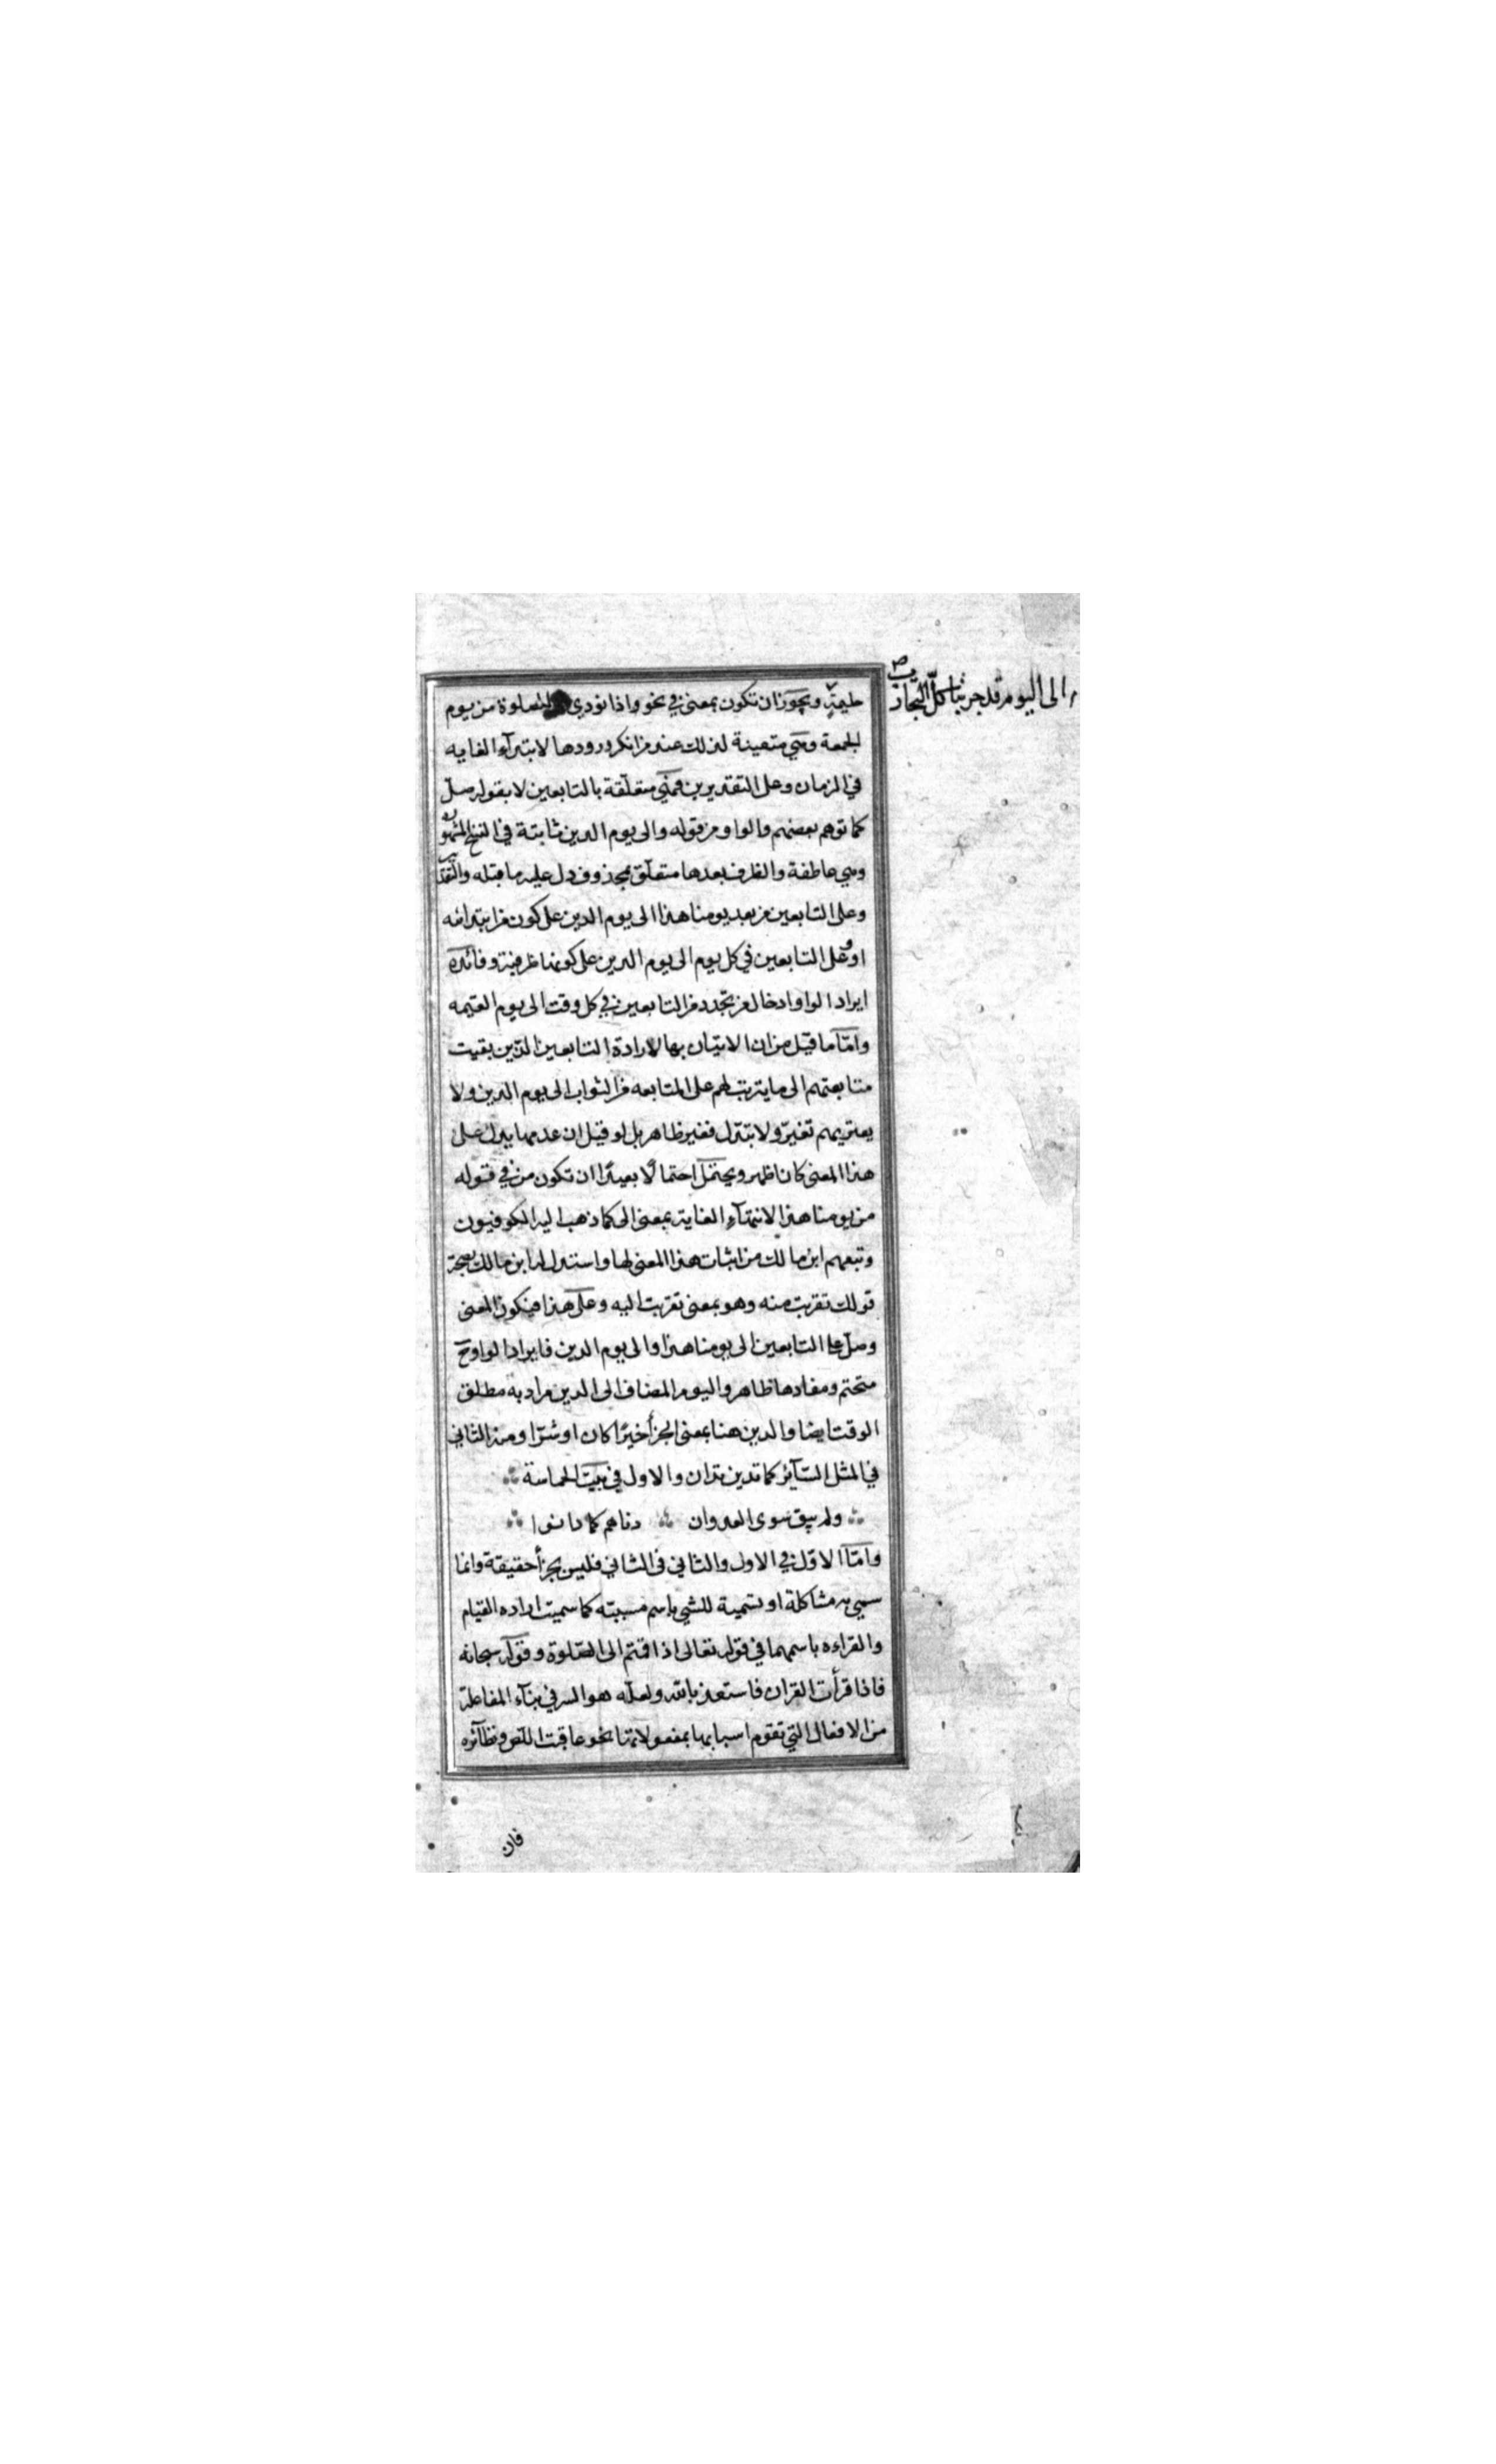 الى اليوم قد جربنا كلّ التجارب
حليمةٍ ويجوز ان تكون بمعنى في نحو واذا نودي للصلوة من يوم
الجمعة وهي متعينة لذلك عند من انكر ورودها لابتدآء الغايه
في الزمان وعلى التقديرين فمن متعلّقة بالتابعين لا بقوله صلّ
كما توهم بعضهم والواو من قوله والى يوم الدين ثابتة في النسخ المشهوره
وهي عاطفة والظرف بعدها متعلّق بمحذوف دل عليه ما قبله والتقدير
وعلى التابعين من بعد يومنا هذا الى يوم الدين على كون من ابتدائيه
او وعلى التابعين في كل يوم الى يوم الدين على كونها ظرفية وفائدة
ايراد الواو ادخال من تجدد من التابعين في كل وقت الى يوم القيمه
وامّا ما قيل من ان الاتيان بها لارادة التابعين الذين بقيت
متابعتهم الى ما يترتب لهم على المتابعه من الثواب الى يوم الدين ولا
يعتريهم تغيّر ولا تبدّل فغير ظاهر بل لو قيل ان عدمها يدل على
هذا المعنى كان اظهر ويحتمل احتمالًا بعيدًا ان تكون من في قوله
من يومنا هذا لانتهآء الغاية بمعنى الى كما ذهب اليه الكوفيون
وتبعهم ابن مالك من اثبات هذا المعنى لها واستدل له ابن مالك بصحة
قولك تقربت منه وهو بمعنى تقربت اليه وعلى هذا فيكون المعنى
وصل على التابعين الى يومنا هذا والى يوم الدين فايراد الواو ح
متحتم ومفادها ظاهر واليوم المضاف الى الدين مراد به مطلق
الوقت ايضا والدين هنا بمعنى الجزأ خيرًا كان او شرّا ومنه الثاني
في المثل السّآئر كما تدين تدان والاول في بيت الحماسة
ولم يبق سوى العدوان دناهم كما دانوا
وامّا الاوّل في الاول والثاني في الثاني فليس بجزأ حقيقة وانما
سمي به مشاكلة او تسمية للشي باسم مسببته كما سميت اراده القيام
والقراءه باسمهما في قوله تعالى اذا قمتم الى الصّلوة وقوله سبحانه
فاذا قرأت القران فاستعذ بالله ولعلّه هو السر في بنآء المفاعلة
من الافعال التي تقوم اسبابها بمفعولاتها نحو عاقبت اللص ونظآئره
فان